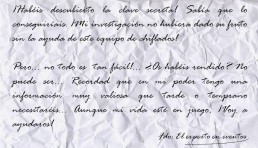 ¡Habéis descubierto la clave secreta! Sabía que lo
conseguiríais. ¡Mi investigación no hubiera dado su fruto
sin la ayuda de este equipo de chiflados!
Pero... no todo es tan fácil!.. ¿Os habéis rendido? No
puede ser... Recordad que en mi poder tengo una
información muy valiosa que tarde o temprano
necesitaréis... Aunque mi vida esté en juego, ¡Voy a
ayudaros!
Fdo: El experto en inventos